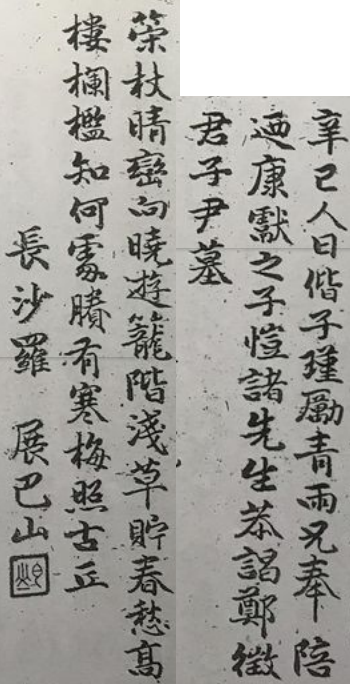 辛巳人日偕子瑾勵青兩兄奉陪
迺康獻之子愷諸先生恭謁鄭徵
君子尹墓
策杖晴巒向曉遊籠階淺草貯春愁高
樓欄檻知何處賸有寒梅照古丘
長沙羅 展巴山